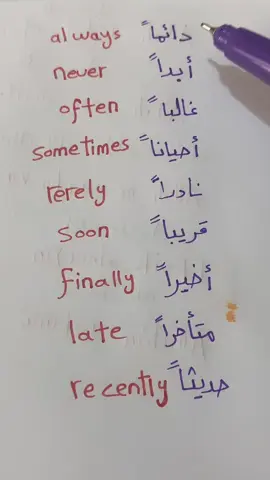 always دائماً
never أبداً
often غالباً
sometimes أحياناً
rerely نادراً
soon قريباً
finally أخيراً
late متأخراً
recently حديثاً